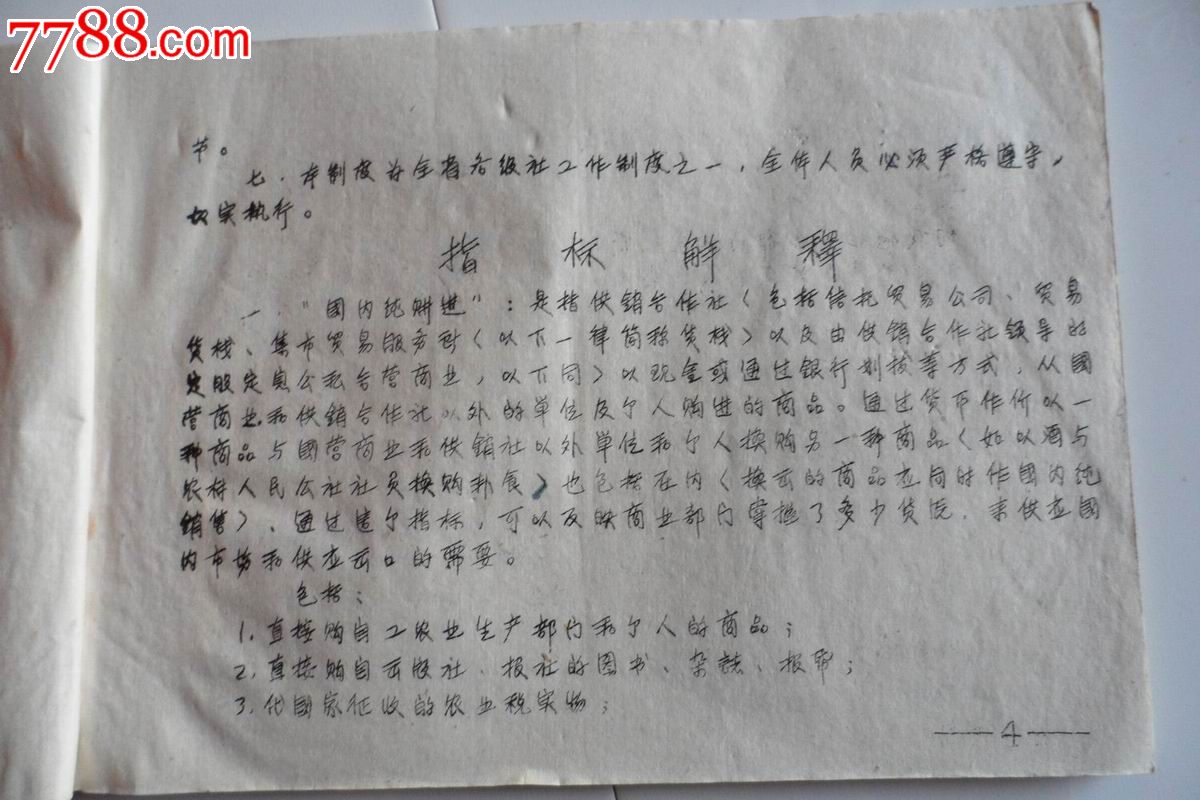 7788.com 收藏
节。
七．本制度为全省各级社工作制度之一，全体人员必须严格遵守，
切实执行。
指标解释
一．“國内纯购进”：是指供销合作社（包括信托贸易公司、贸易
货栈、集市贸易服务所（以下一律简称货栈）以及由供销合作社领导的
定股定息公私合营商业，以下同）以现金或通过银行划拨等方式，从國
营商业和供销合作社以外的单位及个人购进的商品。通过货币作价以一
种商品与國营商业和供销社以外单位和个人换购另一种商品（如以酒与
农村人民公社社员换购粮食）也包括在内（换出的商品应同时作國内纯
销售）、通过这个指标，可以反映商业部门掌握了多少货源．来供应國
内市场和供应出口的需要。
包括：
1．直接购自工农业生产部门和个人的商品；
2．直接购自出版社．报社的图书、杂誌、报帋；
3．代國家征收的农业税实物；
—4—